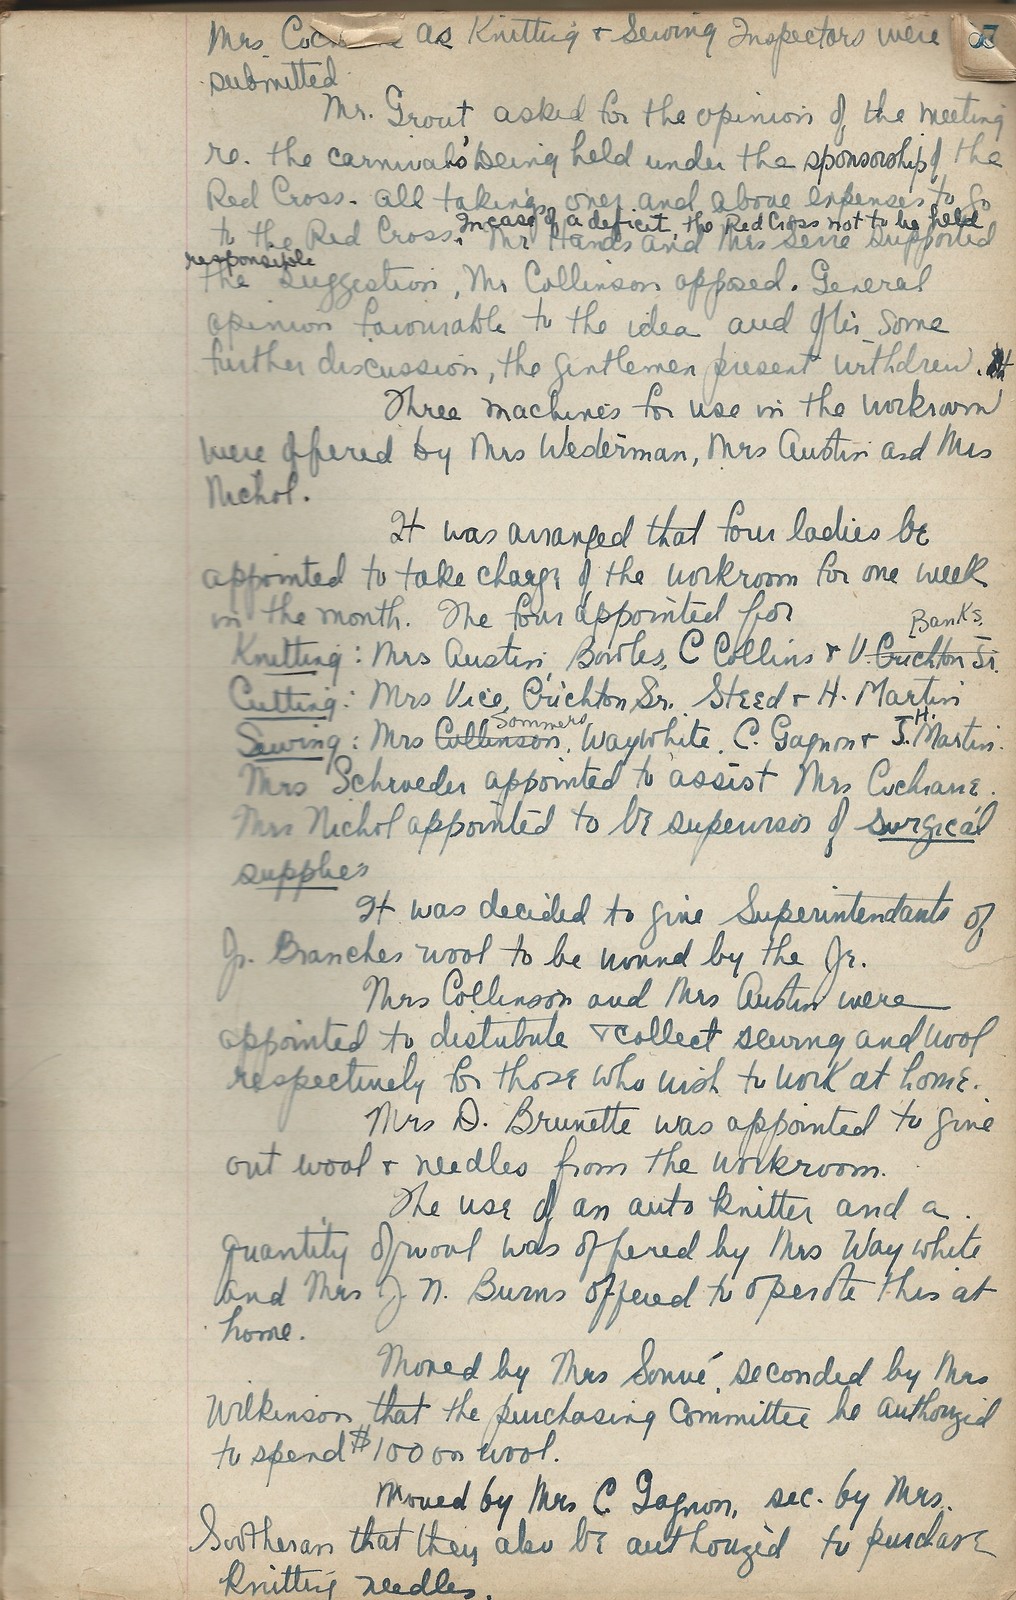 Mrs. Coch as Knitting & Sewing Inspectors were
submitted
Mr. Grout asked for the opinion of the meeting
re. the carnivals being held under the sponsorship of the
Red Cross - all takings over and above expenses to go
In case of a deficit, the Red Cross not to be held
to the Red Cross. Mr Hands and Mrs supported
responsible
the suggestion, Mr Collinson opposed. General
opinion favourable to the idea and after some
further discussion, the gentlemen present withdrew.
Three machines for use in the workroom
were offered by Mrs Wederman, Mrs Austin and Mrs
Nichol.
It was arranged that four ladies be
appointed to take charge of the workroom for one week
in the month. The four appointed for
Banks.
Knitting: Mrs Austin, Bowles, C Collins & V. Crichton Jr.
Cutting: Mrs Vice, Crichton Sr. Steed & H. Martin
Sommers H.
Sewing: Mrs Collinson, Waywhite, C. Gagnon & J. Martin.
Mrs Schroeder appointed to assist Mrs Cochrane.
Mrs Nichol appointed to be supervisor of surgical
supplies
It was decided to give Superintendants of
Jr. Branches wool to be wound by the Jr.
Mrs Collinson and Mrs Austin were
appointed to distribute & collect sewing and wool
respectively for those who wish to work at home.
Mrs D. Brunette was appointed to give
out wool & needles from the workroom.
The use of an auto knitter and a
quantity of wool was offered by Mrs Waywhite
and Mrs J. N. Burns offered to operate this at
home.
Moved by Mrs seconded by Mrs
Wilkinson that the purchasing Committee be authorized
to spend $100 on wool.
Moved by Mrs C Gagnon, sec. by Mrs.
Sootheran that they also be authorized to purchase
knitting needles.